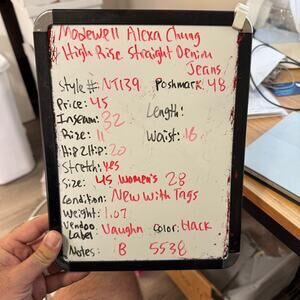 Modewell Alexa Chung
High Rise Straight Denim
Jeans
Style#: NJ139 Poshmark: 48
Price: 45
Inseam: 32 Length:
Rize: 11 Waist: 16
Hip 2 Hip: 20
Stretch: Yes
Size: US Women's 28
Condition: New with Tags
Weight: 1.07
Vendoo Label Vaughn Color: Black
Notes: B 5538